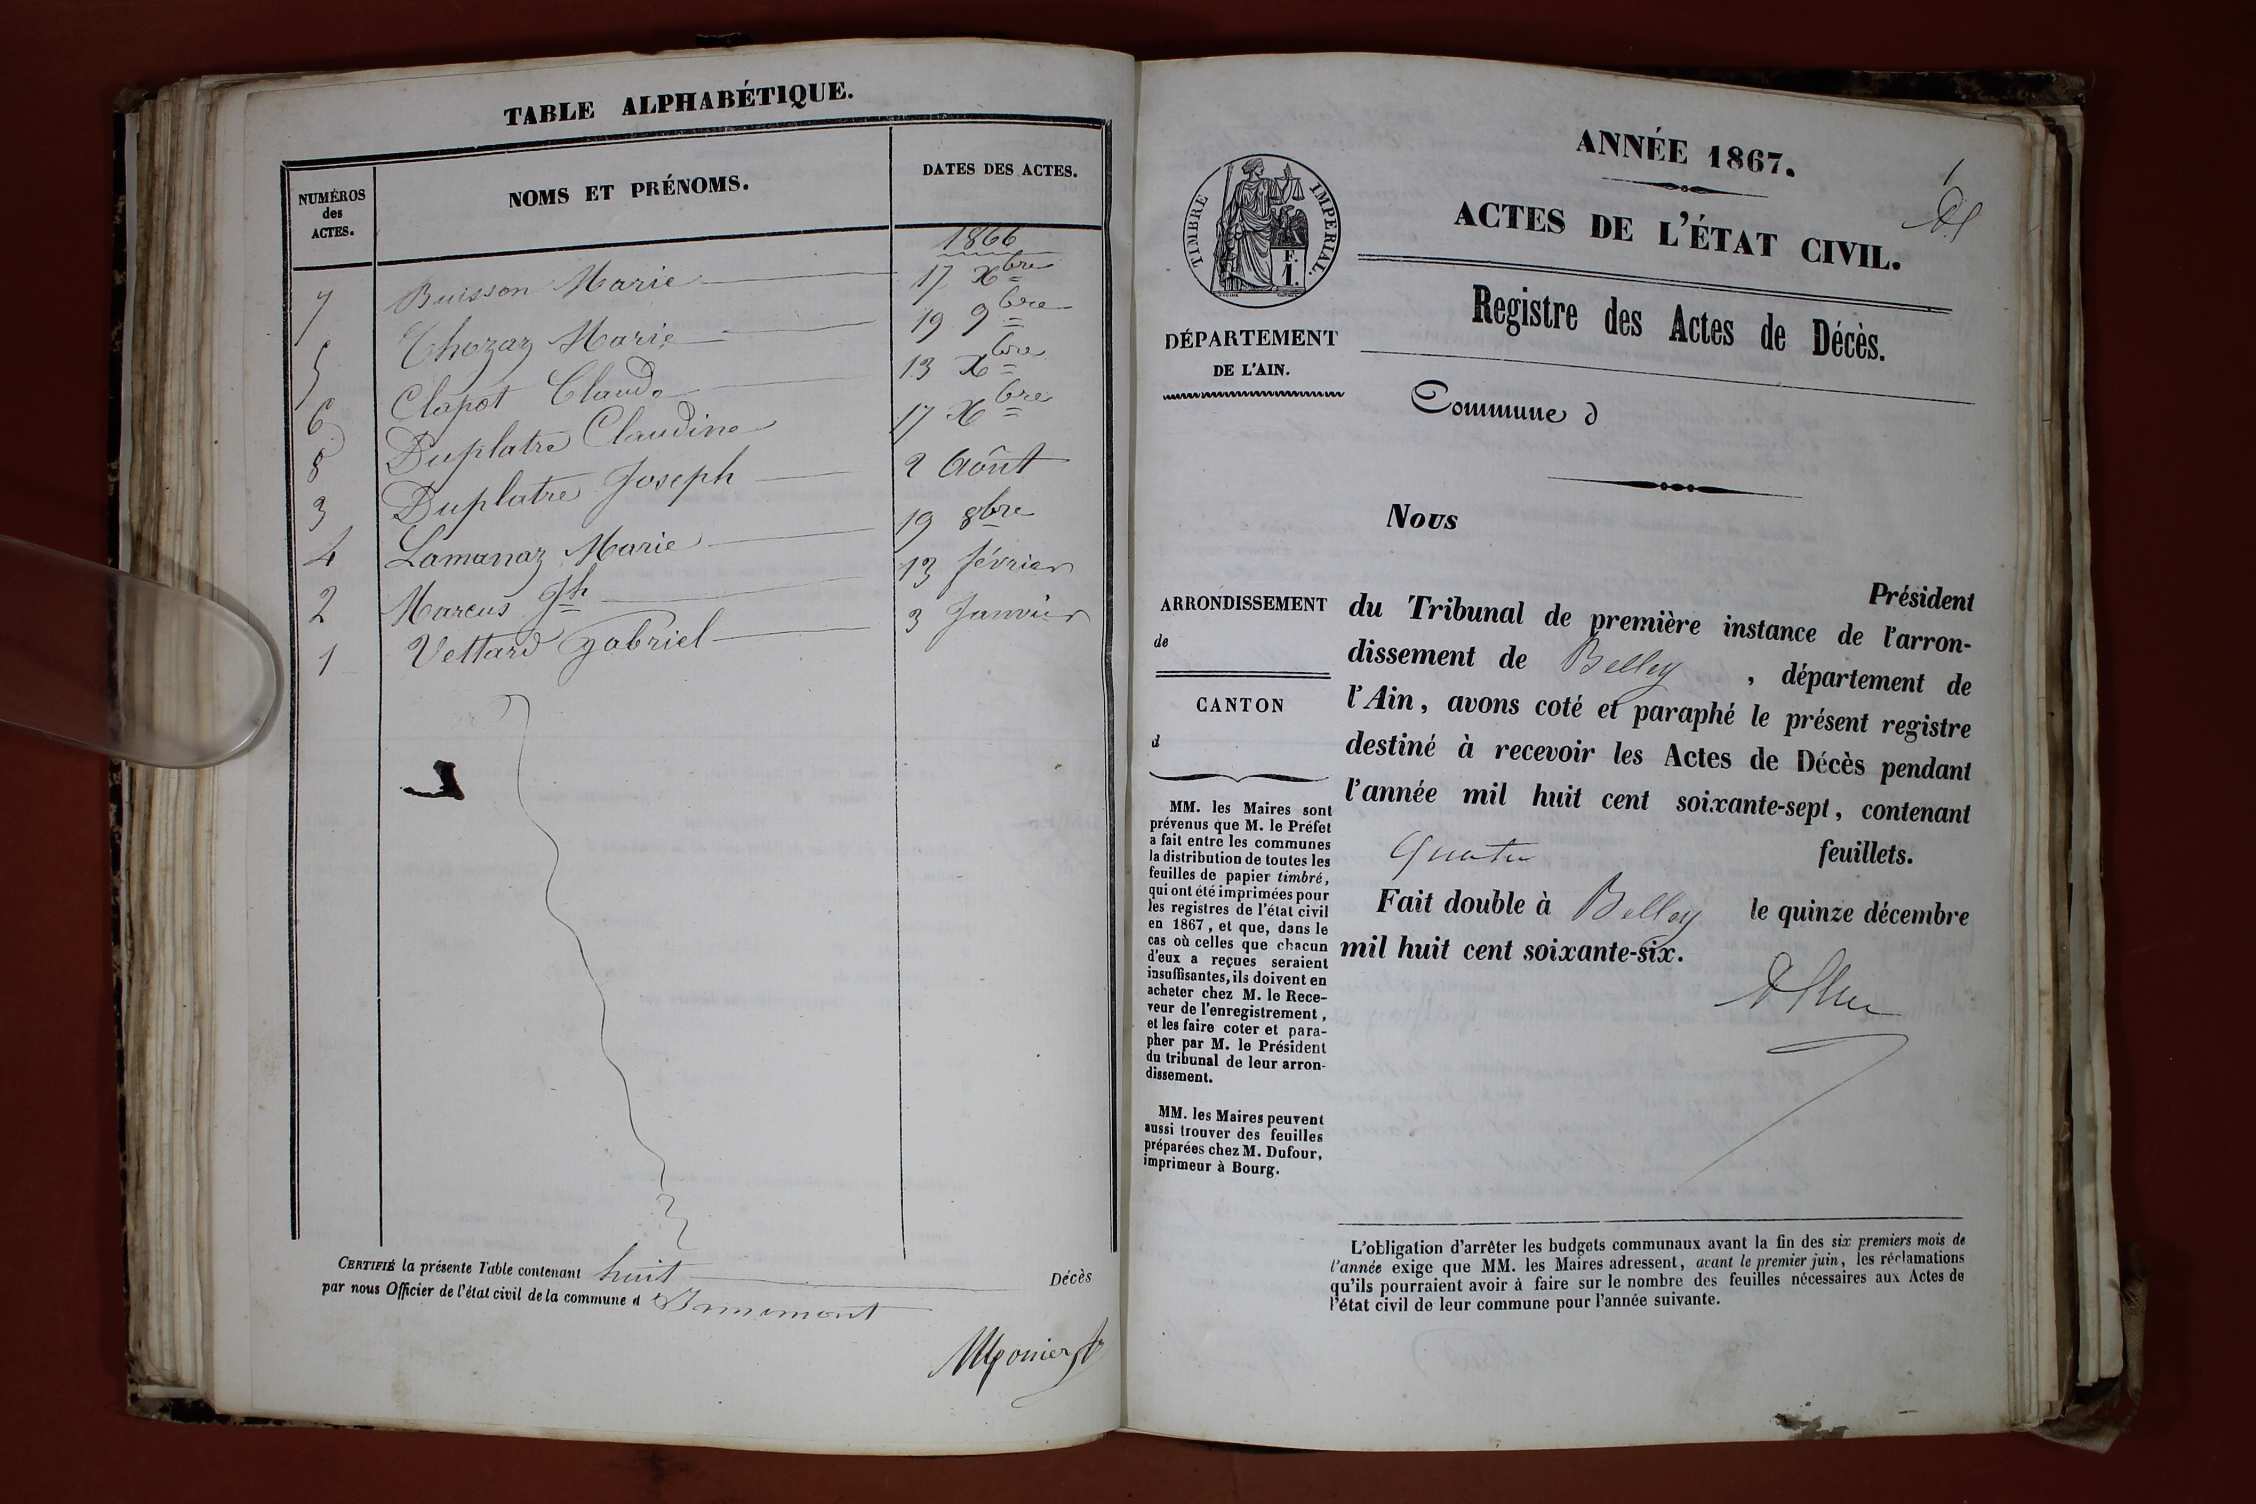 TABLE ALPHABÉTIQUE.
NUMÉROS des ACTES. NOMS ET PRÉNOMS. DATES DES ACTES.
1866
7 Buisson Marie 17 Xbre
5 Chozaz Marie 19 9bre
6 Clapot Claude 13 Xbre
8 Duplatre Claudine 17 Xbre
3 Duplatre Joseph 2 Août
4 Lamanaz Marie 19 8bre
2 Marcus Jh 13 février
1 Vettard gabriel 3 Janvier
CERTIFIÉ la présente Table contenant huit Décès
par nous Officier de l'état civil de la commune d
Monier
ANNÉE 1867.
1
ACTES DE L'ÉTAT CIVIL.
TIMBRE IMPERIAL.
F.
1.
Registre des Actes de Décès.
DÉPARTEMENT
DE L'AIN.
Commune d
Nous
Président
ARRONDISSEMENT
de
CANTON
d
du Tribunal de première instance de l'arron-
dissement de Belley , département de
l'Ain, avons coté et paraphé le présent registre
destiné à recevoir les Actes de Décès pendant
l'année mil huit cent soixante-sept, contenant
quatre feuillets.
Fait double à Belley le quinze décembre
mil huit cent soixante-six.
MM. les Maires sont
prévenus que M. le Préfet
a fait entre les communes
la distribution de toutes les
feuilles de papier timbré,
qui ont été imprimées pour
les registres de l'état civil
en 1867, et que, dans le
cas où celles que chacun
d'eux a reçues seraient
insuffisantes, ils doivent en
acheter chez M. le Rece-
veur de l'enregistrement,
et les faire coter et para-
pher par M. le Président
du tribunal de leur arron-
dissement.
MM. les Maires peuvent
aussi trouver des feuilles
préparées chez M. Dufour,
imprimeur à Bourg.
L'obligation d'arrêter les budgets communaux avant la fin des six premiers mois de
l'année exige que MM. les Maires adressent, avant le premier juin, les réclamations
qu'ils pourraient avoir à faire sur le nombre des feuilles nécessaires aux Actes de
l'état civil de leur commune pour l'année suivante.